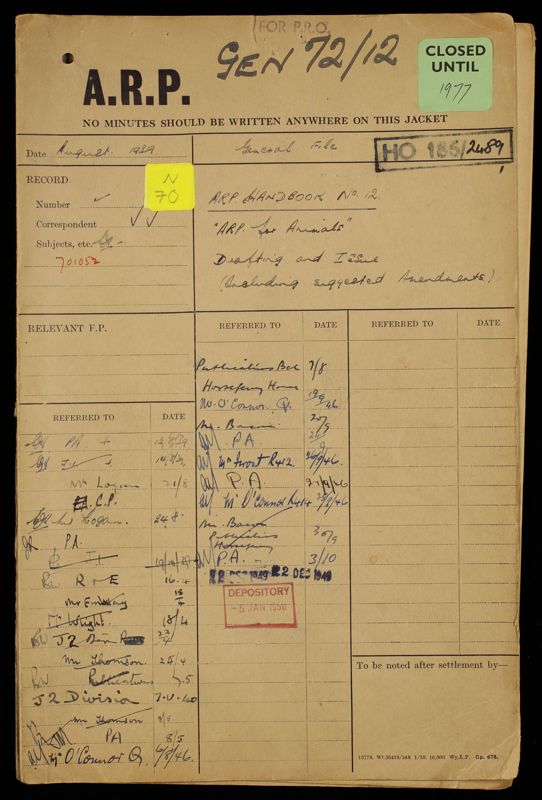 FOR P.R.O.
GEN 72/12
CLOSED
UNTIL
1977
A.R.P.
NO MINUTES SHOULD BE WRITTEN ANYWHERE ON THIS JACKET
Date August 1939
General File
HO 186/2489
RECORD
N
70
Number
Correspondent
Subjects, etc.
701052
ARP HANDBOOK No. 12.
"ARP for Animals"
Drafting and Issue
(Including suggested Amendments)
RELEVANT F.P.
REFERRED TO
DATE
REFERRED TO
DATE
Publications Bch 7/8
Horseferry House
Mr. O'Connor Q.
Mr. Bacon
P.A.
Mr Frost R412.
P.A.
Mr O'Connor R414
Mr. Bacon
Publications
Horseferry
30/9
P.A. 3/10
22 DEC 1949 22 DEC 1949
DEPOSITORY
-5 JAN 1950
REFERRED TO
DATE
PA
Mr Logan 21/8
C.P.
Mr Logan. 24 8
P.A.
R & E 16.4
Mr Wright. 18/4
J2
Mr Thomson. 25 4
Publications 7.5
J2 Division 7.V.40
Mr Thomson 8/5
PA 8/5
Mr O'Connor Q 6/8/46.
To be noted after settlement by—